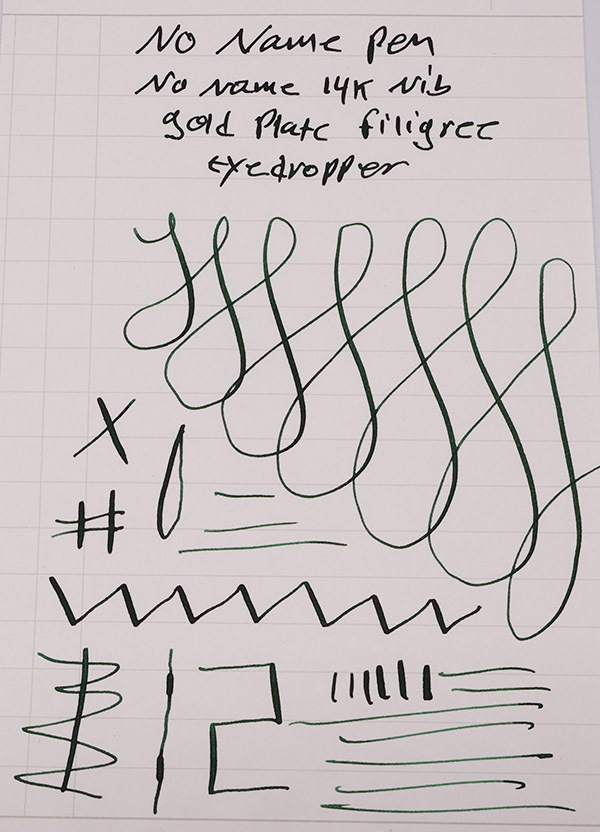 No Name Pen
No Name 14K Nib
gold Plate filigree
eyedropper